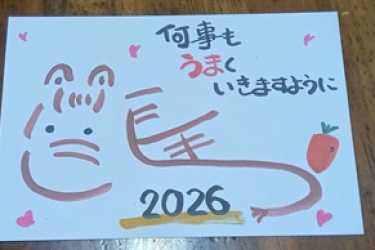 何事も
うまく
いきますように
2026